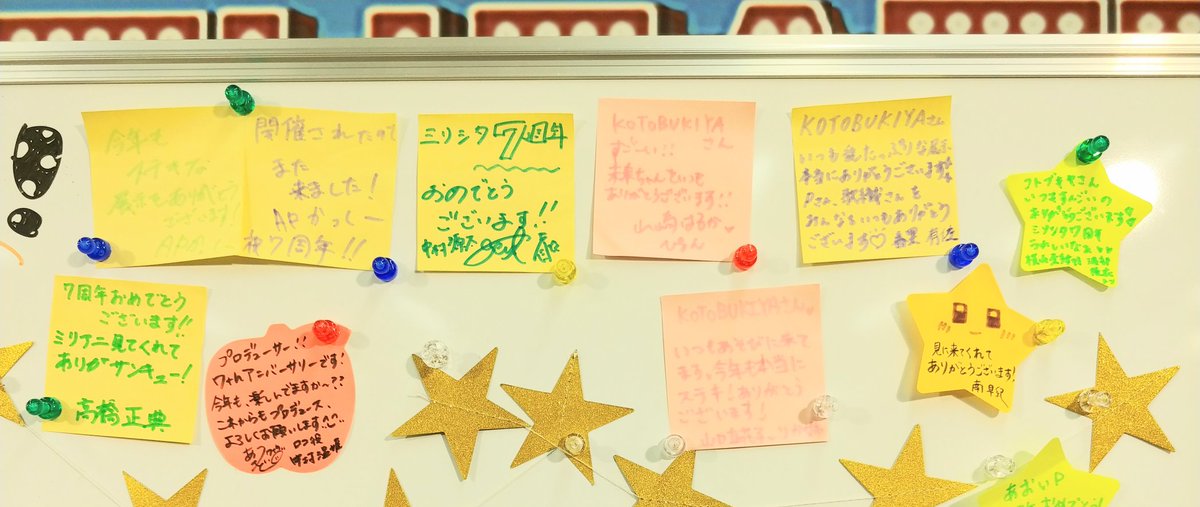 今年も
展示もありがとう
ございます!
開催されたので
また
来ました!
APかっしー
祝7周年!!
ミリシタ7周年
おめでとう
ございます!!
KOTOBUKIYA
さん
すごーい!!
未来ちゃんいつも
ありがとうございます!!
山崎はるか
KOTOBUKIYAさん
いつも愛たっぷりな展示
本当にありがとうございます
Pさん、歌織さんを
みんなもいつもありがとう
ございます♡
コトブキヤさん
いつもすんごいの
ありがとうございます
ミリシタ7周年
うれしいなぁ
7周年おめでとう
ございます!!
ミリアニ見てくれて
ありがサンキュー!
高橋正典
プロデューサー!!
7thアンバーサリーです!
今年も、楽しんでますかー??
これからもプロデュース
よろしくお願いします!
ロコ役
中村温姫
KOTOBUKIYAさん
いつもあそびに来て
ます。今年も本当に
ステキ!ありがとう
ございます!
見に来てくれて
ありがとうございます!
南早紀
あおいP